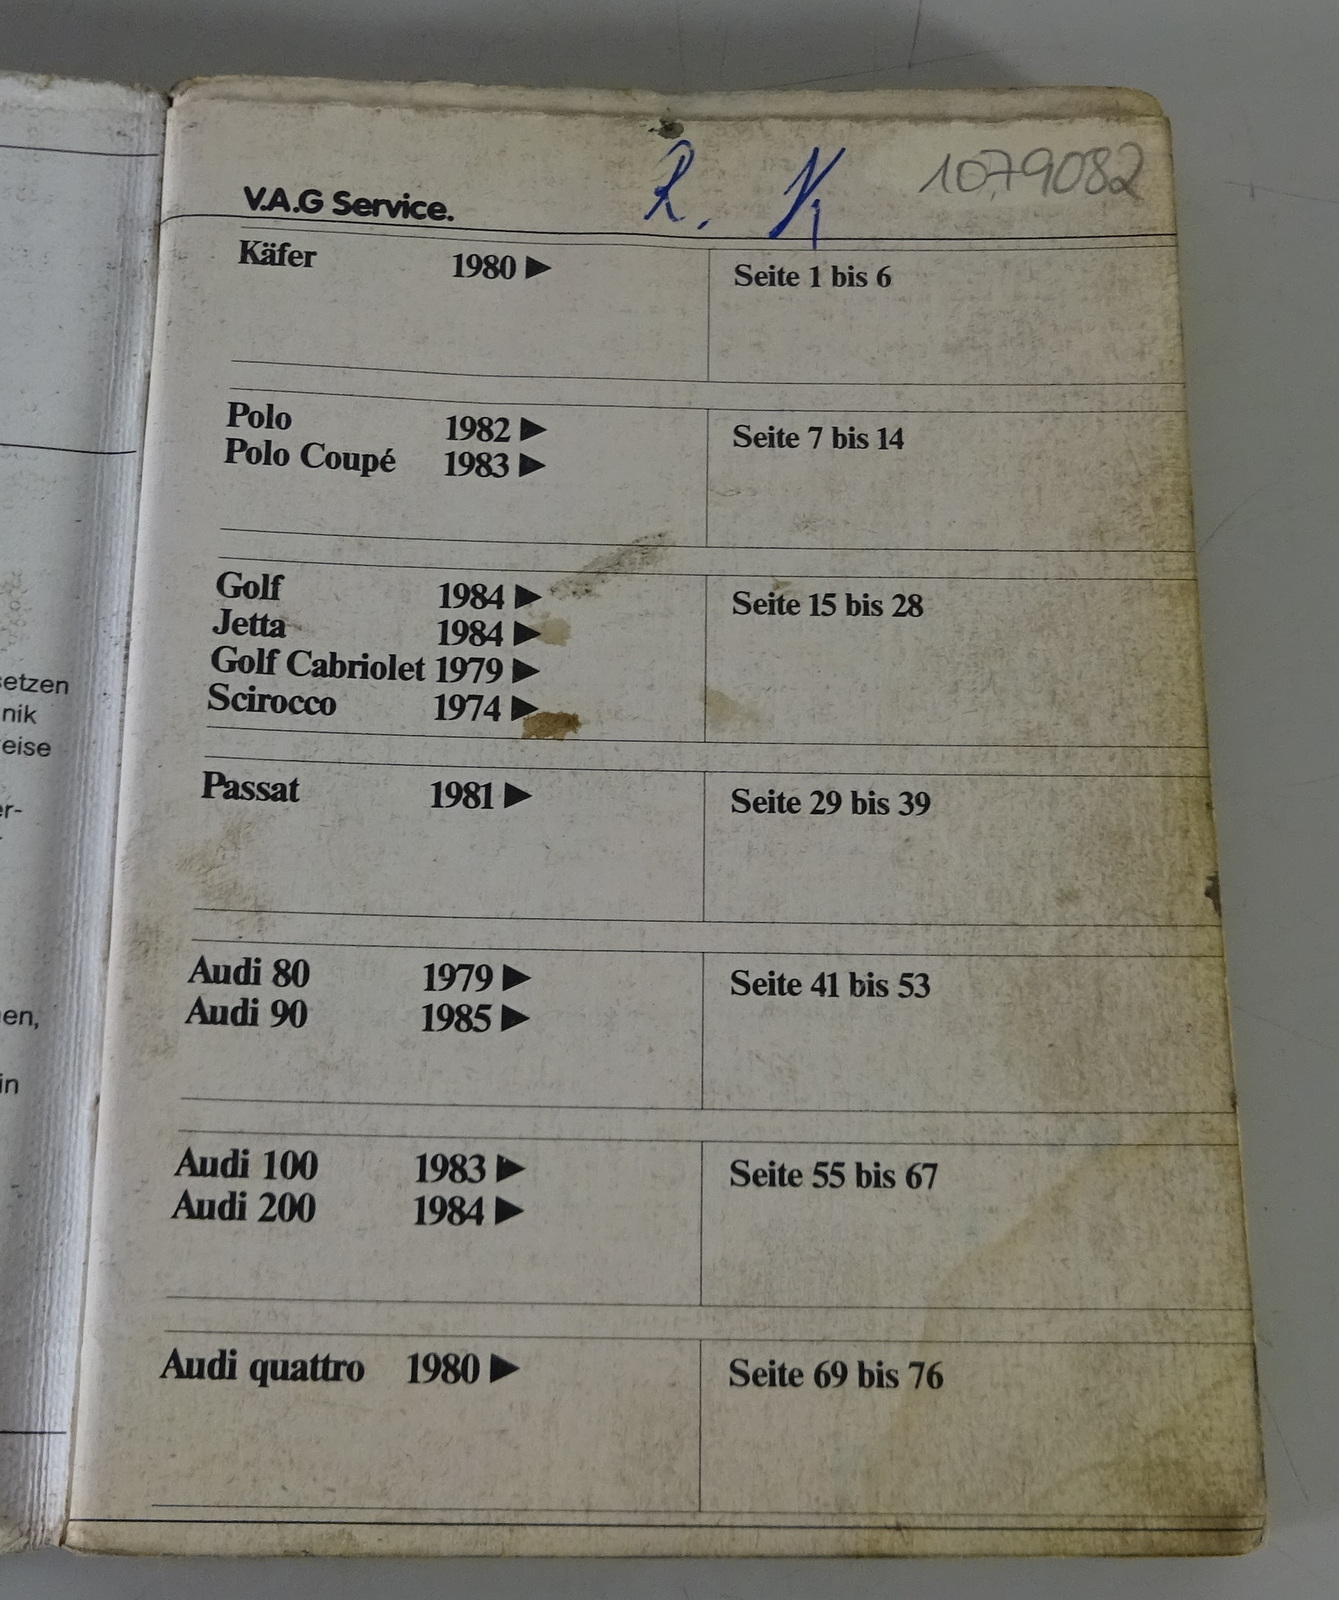 R. K
1079082
V.A.G Service.
Käfer 1980 ► Seite 1 bis 6
Polo 1982 ► Seite 7 bis 14
Polo Coupé 1983 ►
Golf 1984 ► Seite 15 bis 28
Jetta 1984 ►
Golf Cabriolet 1979 ►
Scirocco 1974 ►
Passat 1981 ► Seite 29 bis 39
Audi 80 1979 ► Seite 41 bis 53
Audi 90 1985 ►
Audi 100 1983 ► Seite 55 bis 67
Audi 200 1984 ►
Audi quattro 1980 ► Seite 69 bis 76